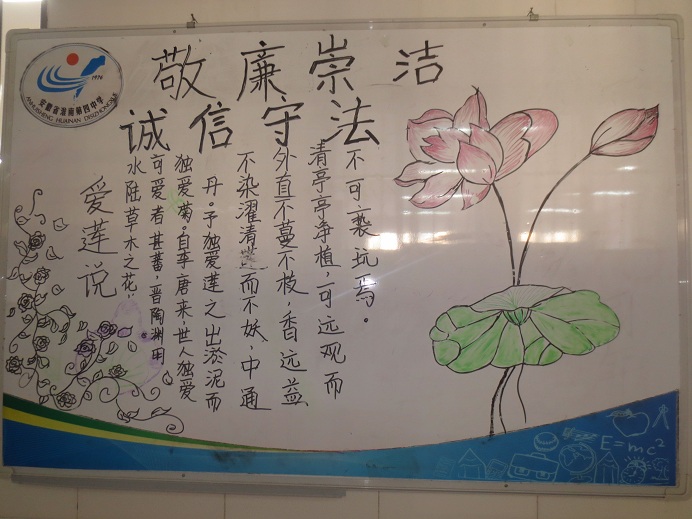 1976
安徽省淮南第四中学
ANHUISHENG HUAINAN DISIZHONGXUE
敬廉崇洁
诚信守法
爱莲说
水陆草木之花,
可爱者甚蕃,晋陶渊明
独爱菊。自李唐来,世人独爱
丹。予独爱莲之出淤泥而
不染濯清涟而不妖,中通
外直不蔓不枝,香远益
清亭亭净植,可远观而
不可亵玩焉。
E=mc²